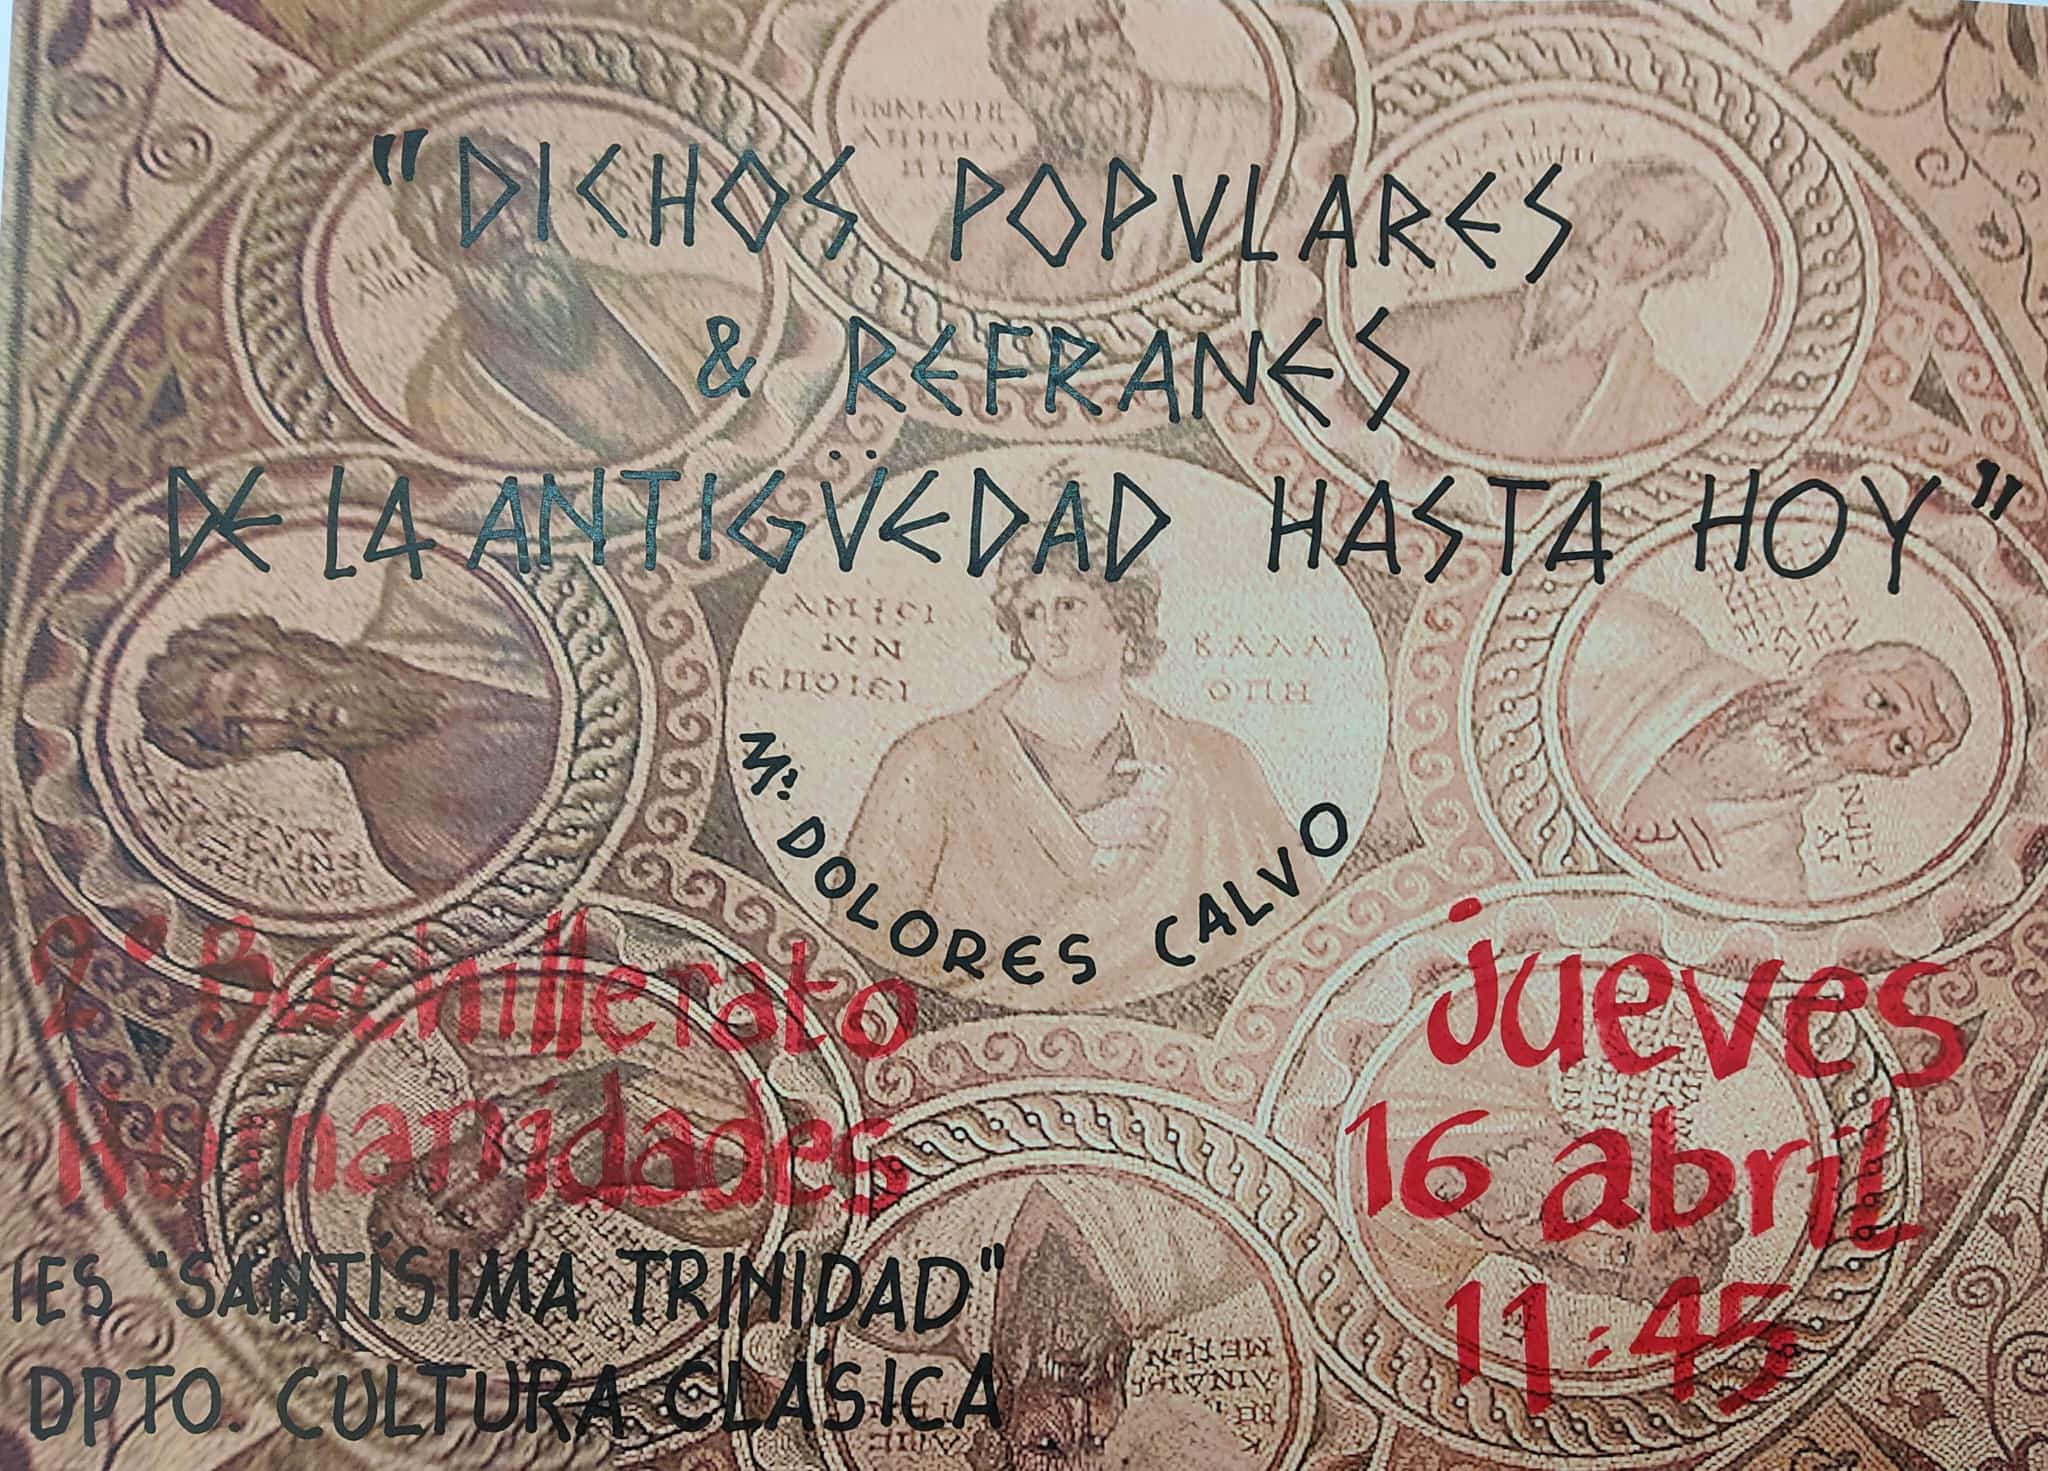 "DICHOS POPVLARES
& REFRANES
DE LA ANTIGÜEDAD HASTA HOY"
ΚΑΛΛΙ
ΟΠΗ
Mª DOLORES CALVO
2º Bachillerato
Humanidades
jueves
16 abril
11:45
IES "SANTÍSIMA TRINIDAD"
DPTO. CULTURA CLÁSICA